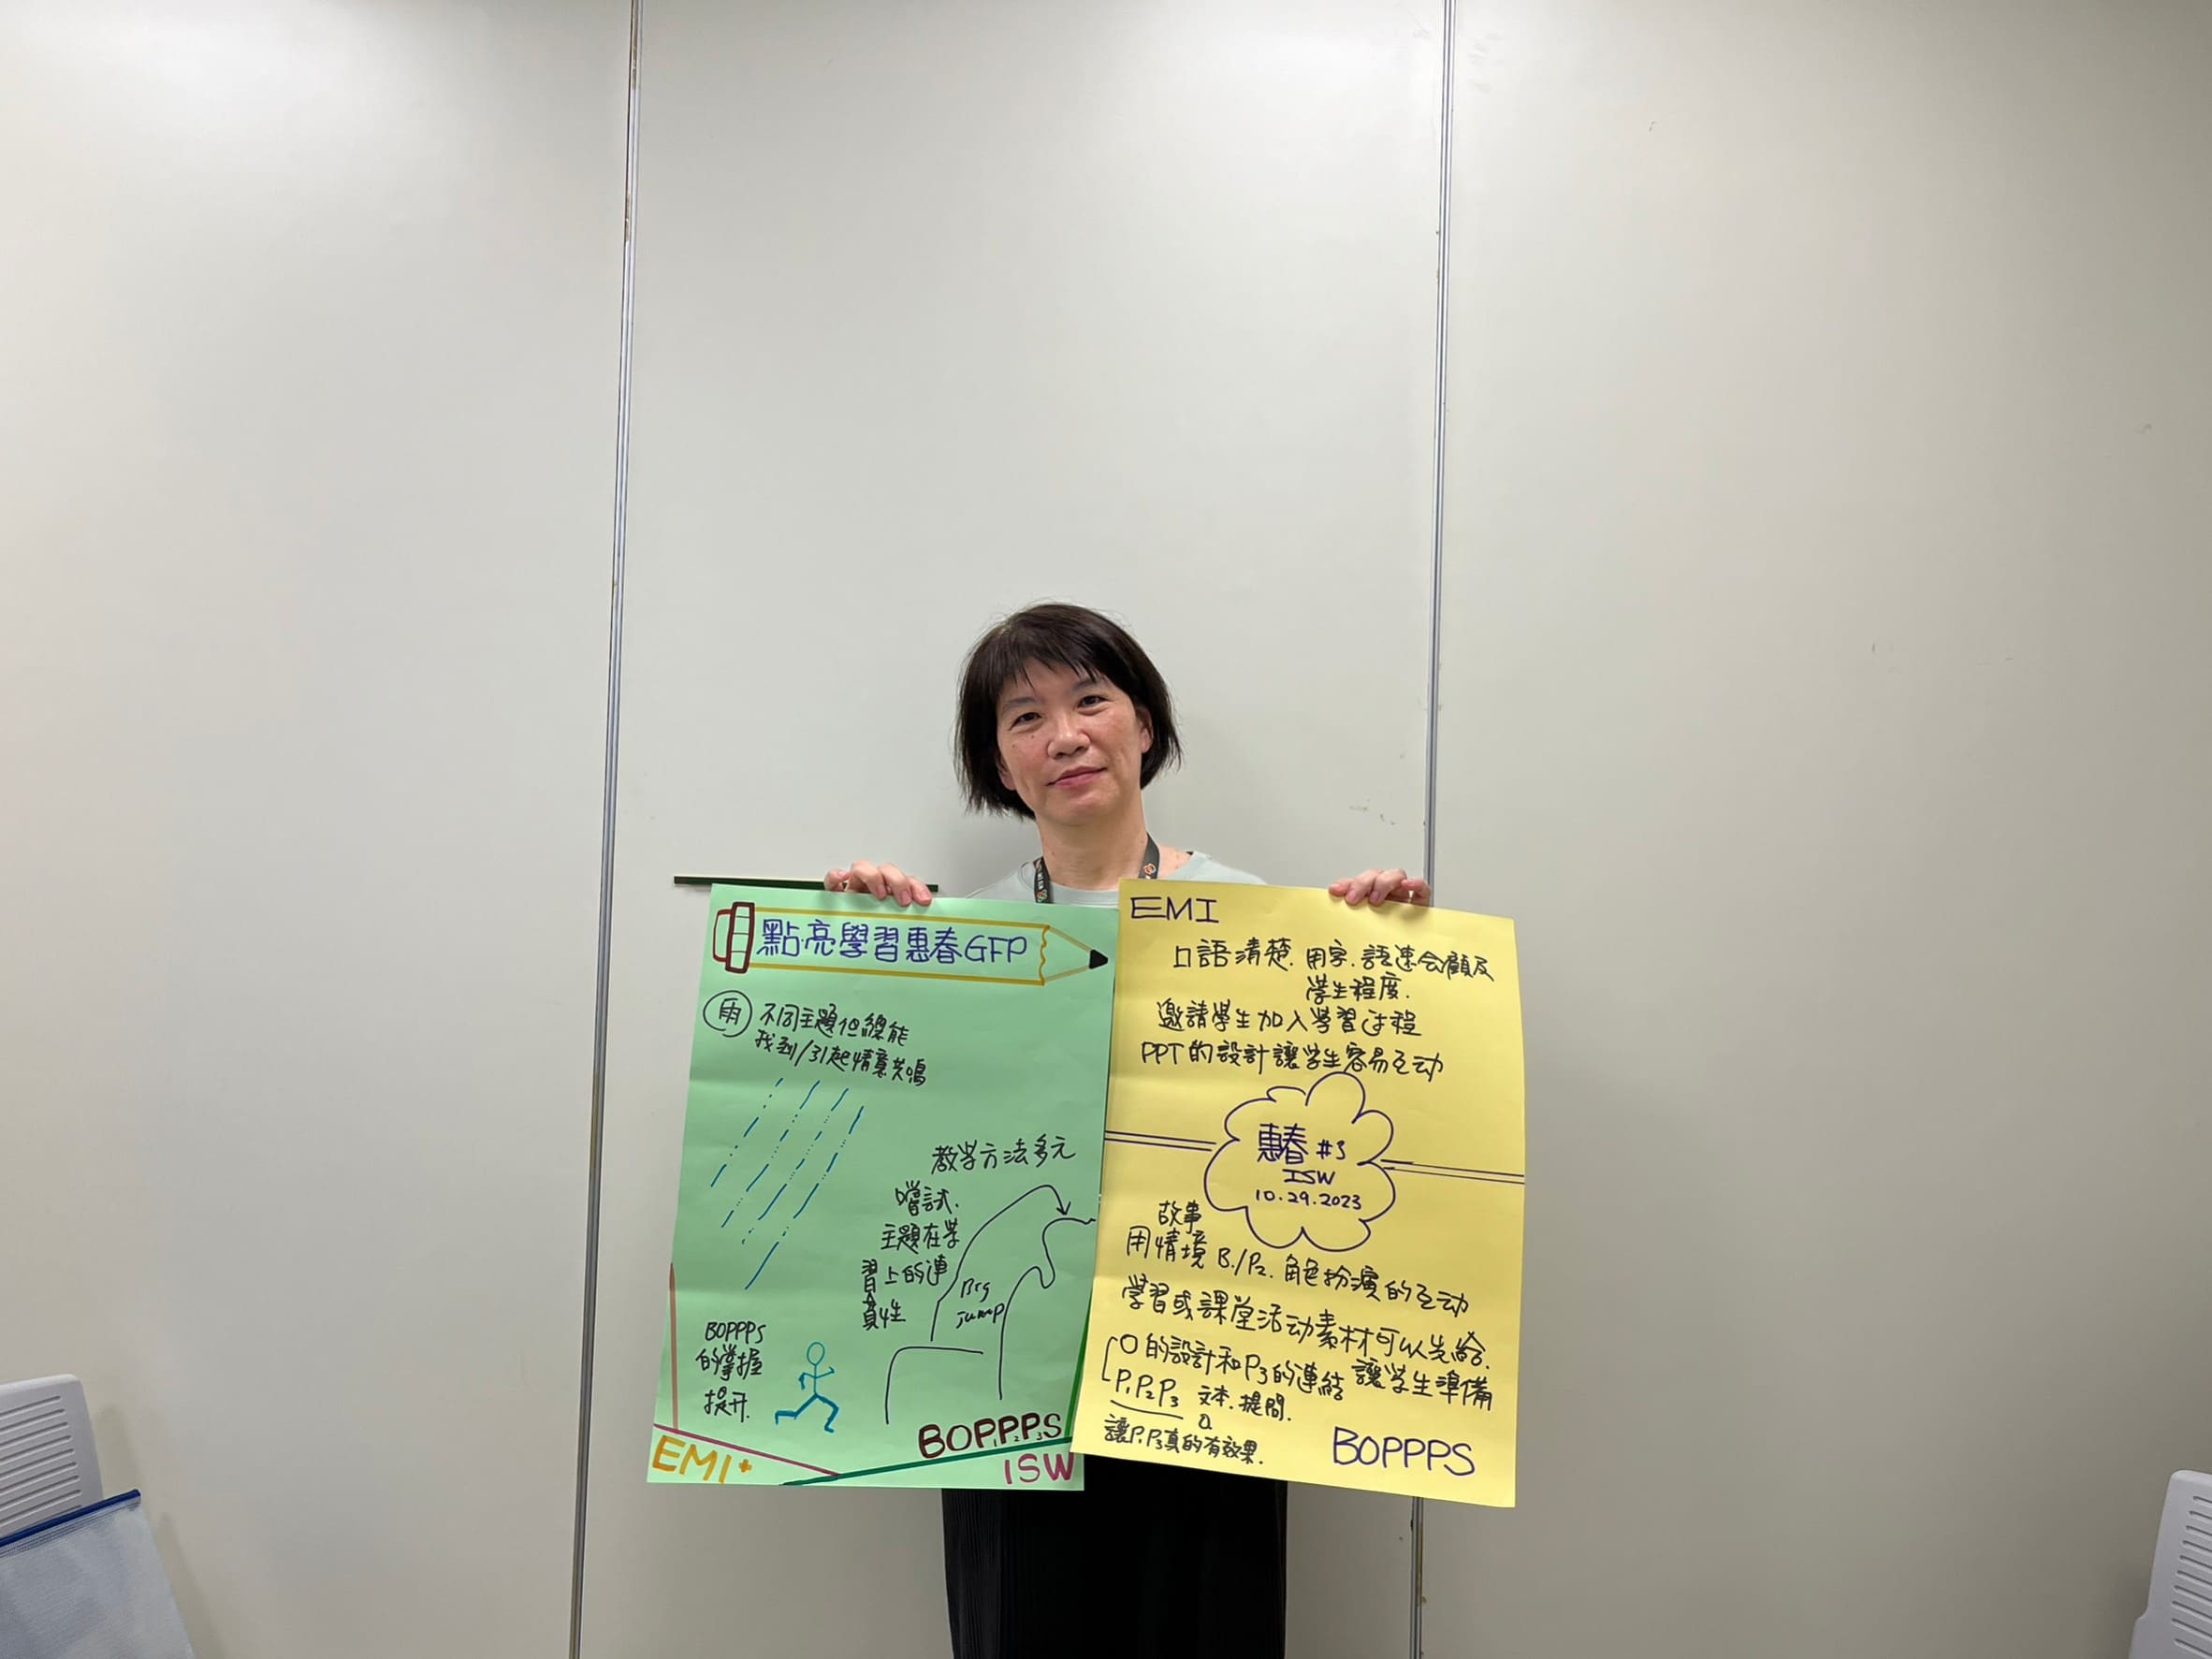 點亮學習惠春GFP
雨 不同主題但總能
找到/引起情意共鳴
教學方法多元
嚐試.
主題在學
習上的連
貫性
Big
jump
BOPPPS
的掌握
提升.
BOP₁P₂P₃S
EMI+
ISW
EMI
口語清楚. 用字. 語速会顧及
學生程度.
邀請學生加入學習过程
PPT的設計讓學生容易互动
惠春 #3
ISW
10.29.2023
故事
用情境 B./P₂. 角色扮演的互动
學習或課堂活动素材可以先給.
讓學生準備
O的設計和P₃的連結
P₁P₂P₃ 文本.提問.
讓P₁P₃真的有效果.
BOPPPS